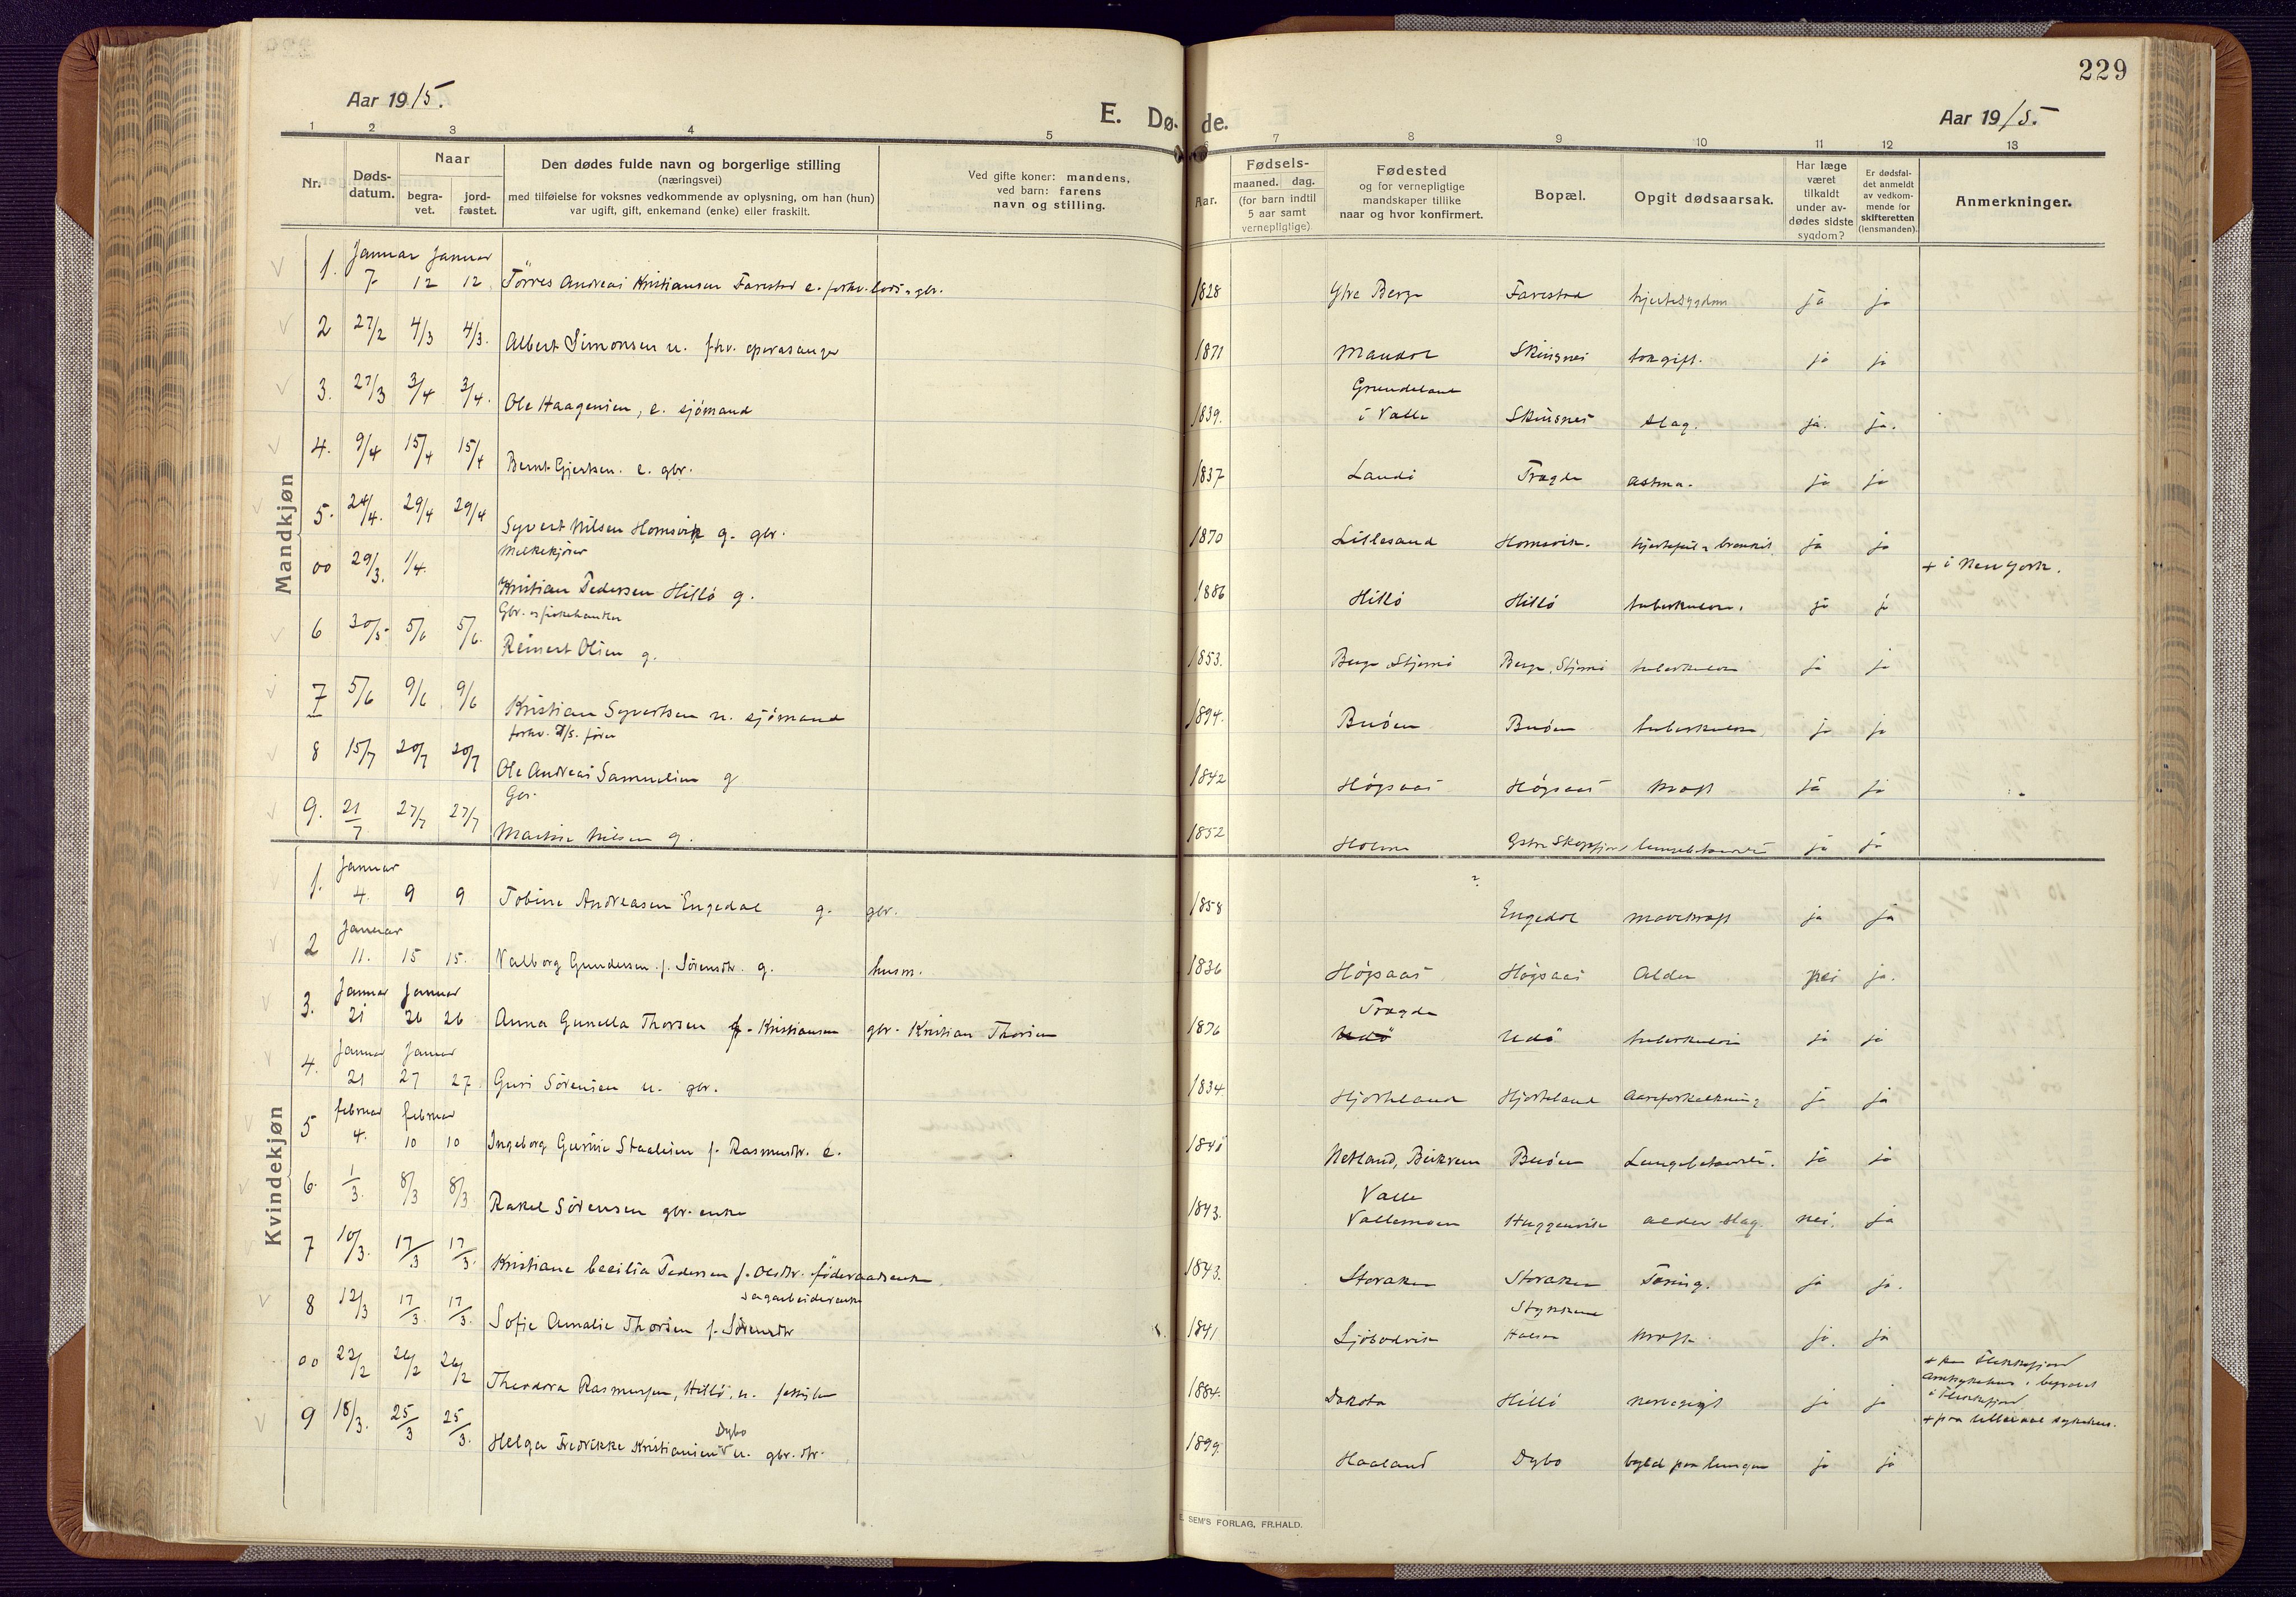 229
Aar 1915.
E. Dø- de.
Aar 1915.
1 2 3 4 5 7 8 9 10 11 12 13
Nr. Døds-datum. Naar begra-vet. jord-fæstet. Den dødes fulde navn og borgerlige stilling (næringsvei) med tilføielse for voksnes vedkommende av oplysning, om han (hun) var ugift, gift, enkemand (enke) eller fraskilt. Ved gifte koner: mandens, ved barn: farens navn og stilling. Aar. Fødsels- maaned. dag. (for barn indtil 5 aar samt vernepligtige). Fødested og for vernepligtige mandskaper tillike naar og hvor konfirmert. Bopæl. Opgit dødsaarsak. Har læge været tilkaldt under av-dødes sidste sygdom? Er dødsfal-det anmeldt av vedkom-mende for skifteretten (lensmanden). Anmerkninger.
Mandkjøn
Januar Januar
1. 7 12 12 Törres Andreas Kristiansen Farestad e. forhv. lods, gbr. 1828 Ytre Berge Farestad hjertesygdom ja ja
2 27/2 4/3 4/3. Albert Simonsen u. fhv. operasanger 1871 Mandal Skinsnes ja ja
Grundeland
3. 27/3 3/4 3/4. Ole Haagensen, e. sjömand 1839. i Valle Skinsnes slag. ja. ja.
4. 9/4 15/4 15/4 Bernt Gjertsen. e. gbr. 1837 Landö Tregde astma. ja ja
5. 24/4. 29/4 29/4 Syvert Nilsen Homsvik g. gbr. 1870 Lillesand Homsvik. ja ja
Melkekjörer
+ i New York.
00 29/3. 1/4. Kristian Pedersen Hillö g. 1886 Hillö Hillö tuberkulose. ja ja
Gbr. og
6 30/5 5/6 5/6. Reinert Olsen g. 1853. Berge, Stjernö Berge, Stjernö tuberkulose ja ja
7 5/6 9/6 9/6 Kristian Syvertsen u. sjömand 1894. Buöen Buöen tuberkulose ja ja
forhv. D/S. förer
8 15/7 20/7 20/7 Ole Andreas Samuelsen g 1842 Högsaas Högsaas kræft ja ja
Gbr.
9. 21/7 27/7 27/7 Martin Nilsen g. 1852 Holum lungebetændelse ja ja
Kvindekjøn
Januar
1. 4. 9 9 Tobine Andreasen Engedal g. gbr. 1858 ? Engedal mavekræft ja ja
Januar
2 11. 15 15. Valborg Gundersen f. Sörensdtr. g. husm. 1836 Högsaas Högsaas Alder nei ja.
Januar Januar Tregde
3. 21 26 26 Anna Gunella Thorsen f. Kristiansen gbr. Kristian Thorsen 1876 Udö Udö tuberkulose ja ja
Januar Januar
4. 21 27 27. Guri Sörensen u. gbr. 1834 Hjorteland Hjorteland Aareforkalkning ja ja
februar februar
5 4. 10 10 Ingeborg Gurine Staalesen f. Rasmusdtr. e. 1840 Netland, Bjerkrem Buöen Lungebetændelse. ja ja
Valle
6. 1/3. 8/3 8/3 Rakel Sörensen gbr. enke 1843. Vallemoen alder slag. nei. ja
7 10/3. 17/3 17/3. Kristiane Cecilia Pedersen f. Olsdtr. föderaadsenke. 1843. Storaker Storaker Tæring. ja ja.
sagarbeiderenke
8 12/3 17/3. 17/3. Sofie Amalie Thorsen f. Sörensdtr 1841 kræft ja. ja
00 22/2 26/2 26/2 Theodora Rasmussen, Hillö, u. 1884. Dakota Hillö ja ja + paa Flekkefjord amtsykehus, begravet i Flekkefjord
Dybo
9 18/3. 25/3 25/3. Helga Fredrikke Kristiansen v u. gbr. dtr. 1899. Haaland Dybo byld paa lungen ja ja + paa Ullevaal sykehus.
E. SEM'S FORLAG, FR.HALD.